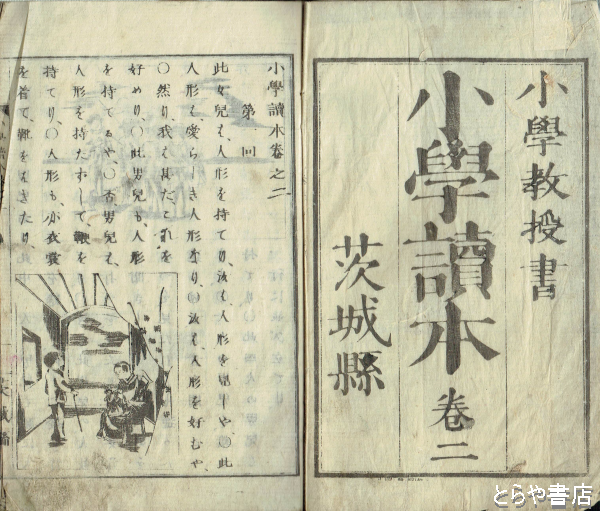 小學教授書
小學讀本
卷二
茨城縣
小學讀本卷之二
第一回
此女兒も、人形を持てり、汝も、人形を見しや、〇此
人形も、愛らしき人形なり、〇汝も、人形を好むや、
〇然り、我も甚だこれを
好めり、〇此男兒も、人形
を持てるや、〇否男兒も、
人形を持たずして、鞭を
持てり、〇人形も、小衣裳
を着て、靴をはきたり、
とらや書店